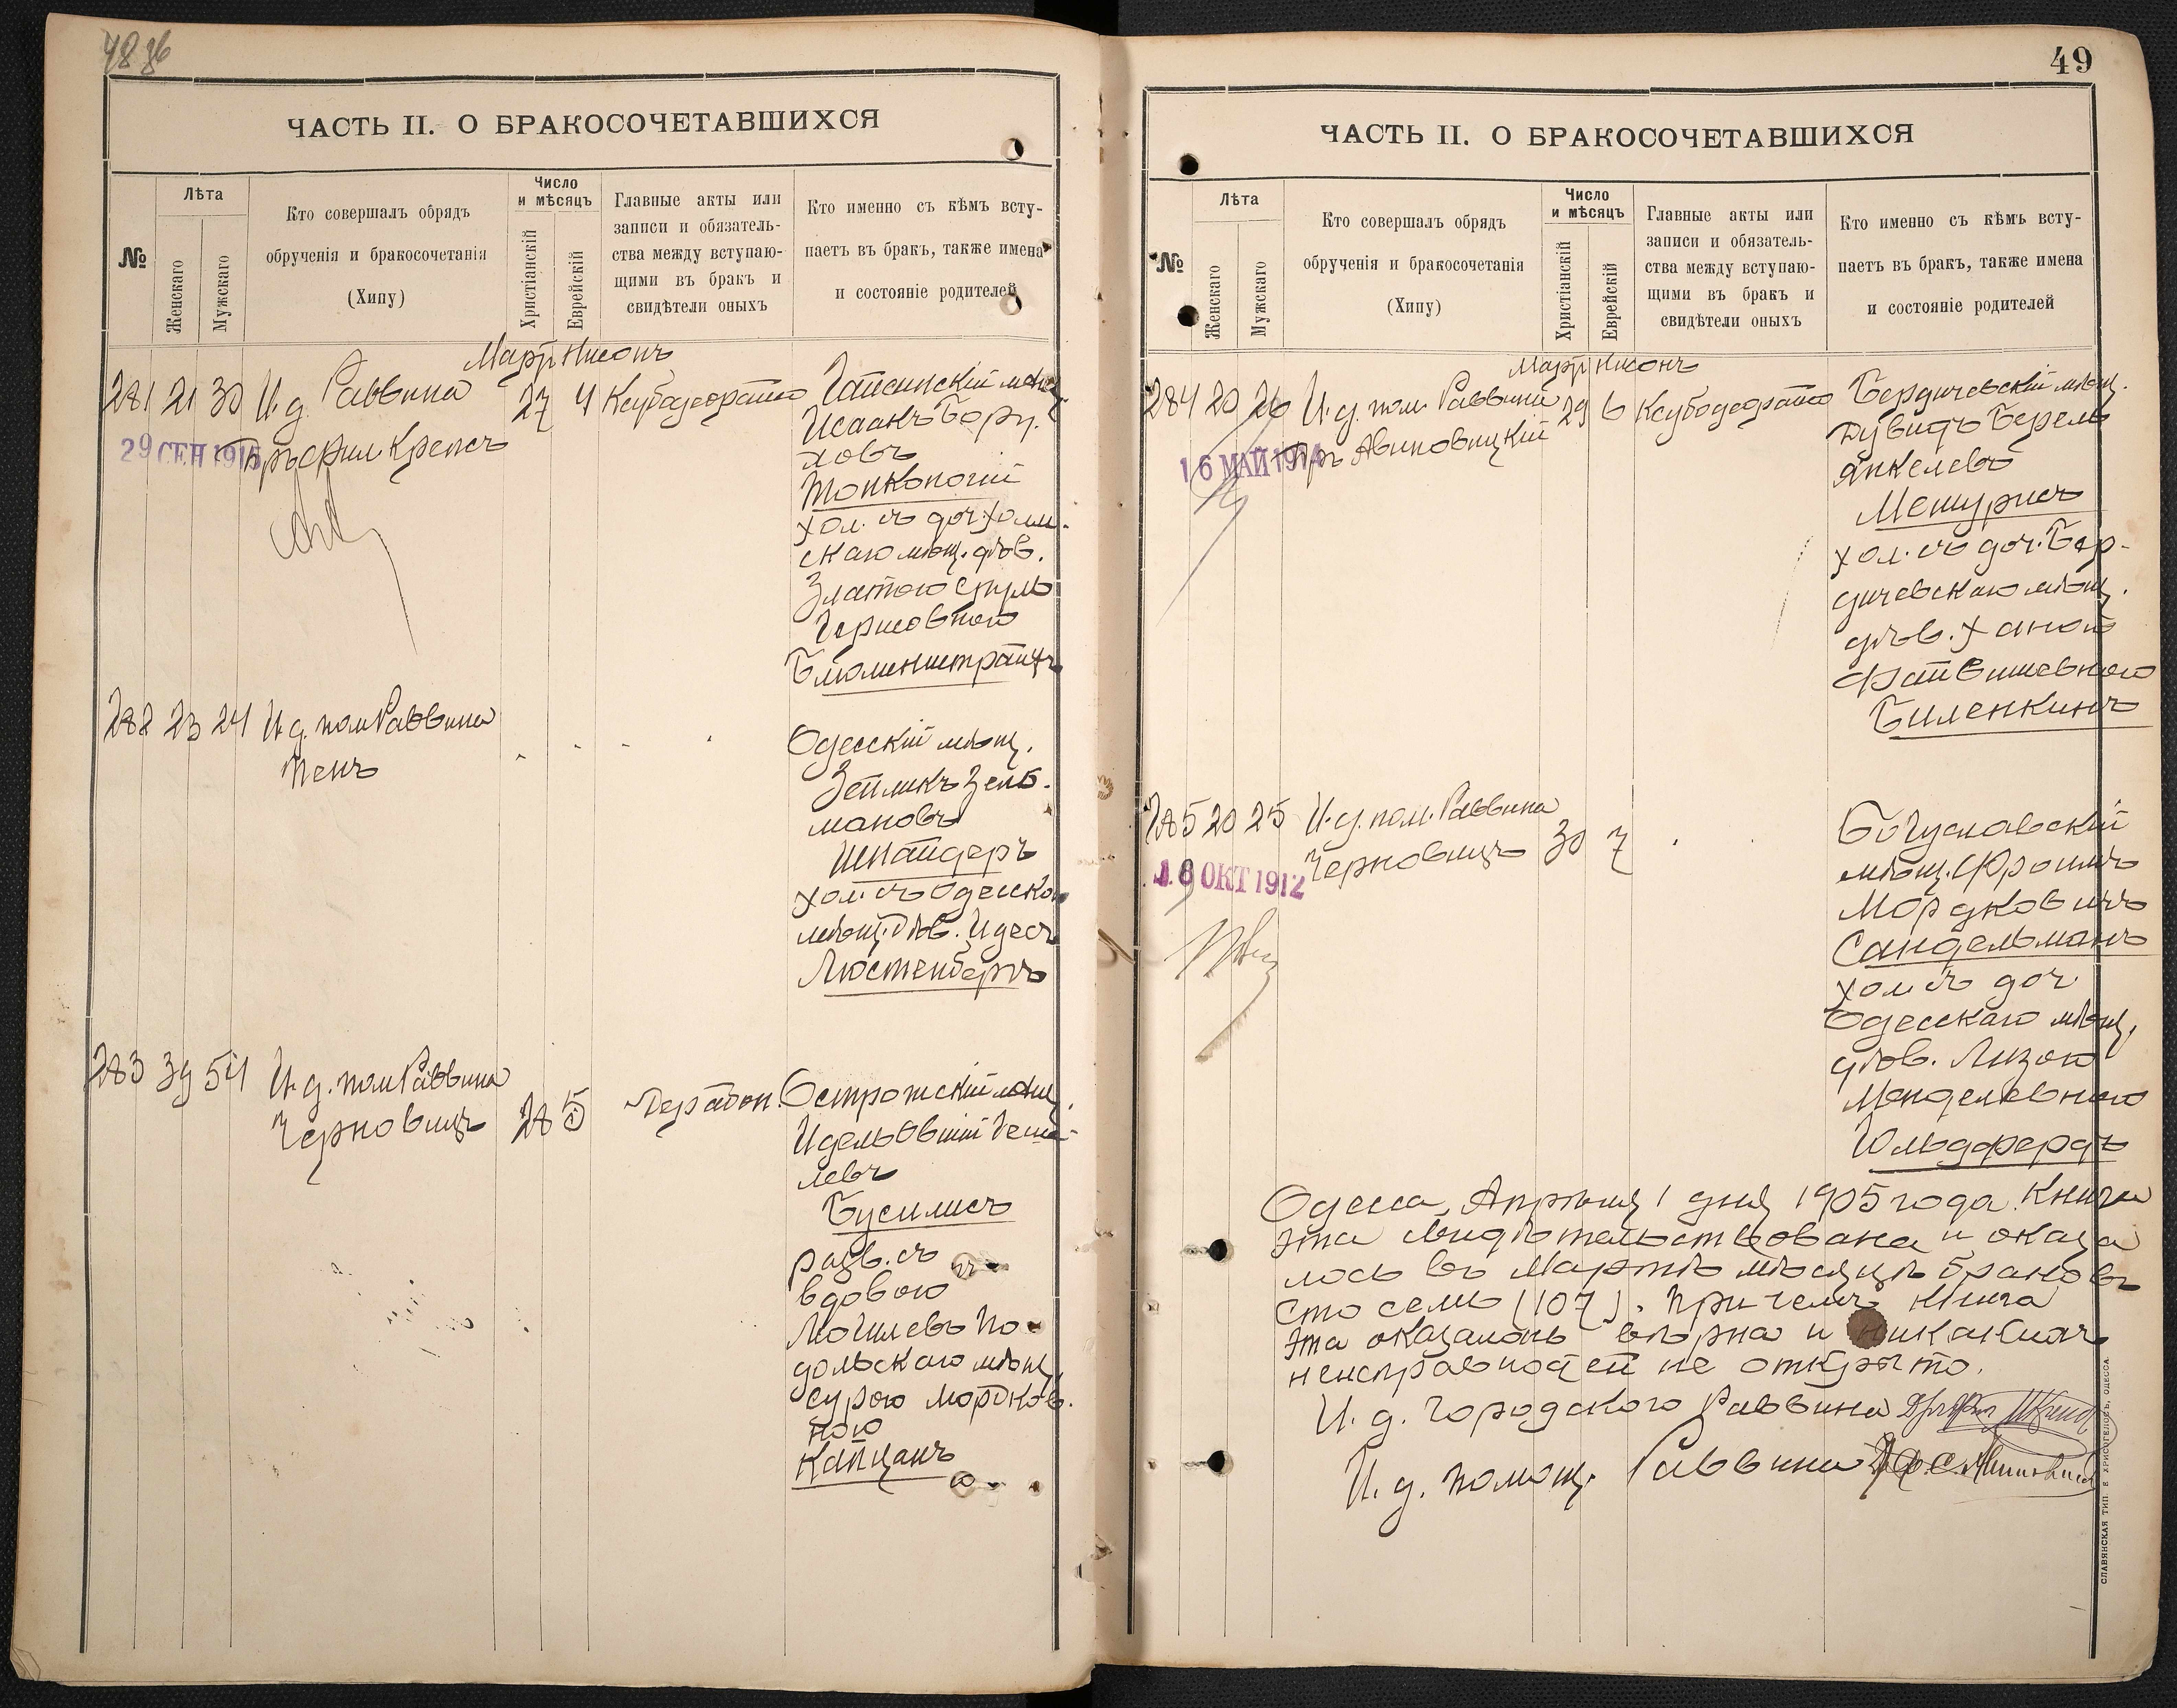 48 об
ЧАСТЬ II. О БРАКОСОЧЕТАВШИХСЯ
№
Лѣта
Женскаго
Мужскаго
Кто совершалъ обрядъ
обрученія и бракосочетанія
(Хипу)
Число
и мѣсяцъ
Христіанскій
Еврейскій
Главные акты или
записи и обязатель-
ства между вступаю-
щими въ бракъ и
свидѣтели оныхъ
Кто именно съ кѣмъ всту-
паетъ въ бракъ, также имена
и состояніе родителей
Мартъ Нисонъ
281 21 30 И. д. Раввина 27 4
Крепсъ
29 СЕН 1915
Гайсинскій мѣщ.
Исаакъ Бору-
ховъ
Топкопогій
хол. съ доч. Холм-
скаго мѣщ. дѣв.
Златою Сруль
Гершовною
Блюменштраухъ
282 23 24 И. д. пом. Раввина
Пенъ
Одесскій мѣщ.
Зейликъ Зель-
мановъ
Шпайдеръ
хол. съ Одесской
мѣщ. Дѣв. Идесъ
Люстенбергъ
283 39 54 И. д. пом. Раввина
Черновицъ 28 5
Острожскій мѣщ.
Идель Овшій
левъ
Бусилисъ
разв. съ
вдовою
Могилевъ По-
дольскаго мѣщ.
Сурою Мордков-
ною
Капцанъ
49
ЧАСТЬ II. О БРАКОСОЧЕТАВШИХСЯ
№
Лѣта
Женскаго
Мужскаго
Кто совершалъ обрядъ
обрученія и бракосочетанія
(Хипу)
Число
и мѣсяцъ
Христіанскій
Еврейскій
Главные акты или
записи и обязатель-
ства между вступаю-
щими въ бракъ и
свидѣтели оныхъ
Кто именно съ кѣмъ всту-
паетъ въ бракъ, также имена
и состояніе родителей
Мартъ Нисонъ
284 20 26 И. д. пом. Раввина 29 6
Авиновицкій
16 МАЙ 1914
Бердичевскій мѣщ.
Дувидъ Берель
Янкелевъ
Мешурисъ
хол. съ доч. Бер-
дичевскаго мѣщ.
дѣв. Ханою
Файвишевною
Биленкинъ
285 20 25 И. д. пом. Раввина
Черновицъ 30 7
18 ОКТ 1912
Богуславскій
мѣщ. Фроимъ
Мордковичъ
Сандельманъ
хол. съ доч
Одесскаго мѣщ.
дѣв. Лизою
Менделевною
Гольдфердъ
Одесса, Апрѣля 1 дня 1905 года. Книга
эта свидѣтельствована и оказа
лось въ Мартѣ мѣсяцѣ браковъ
сто семь (107). При чемъ книга
эта оказалась вѣрна и никакихъ
неисправностей не открыто.
И. д. Городского Раввина
И. д. помощ. Раввина
СЛАВЯНСКАЯ ТИП. Е ХРИСОГЕЛОСЪ, ОДЕССА.